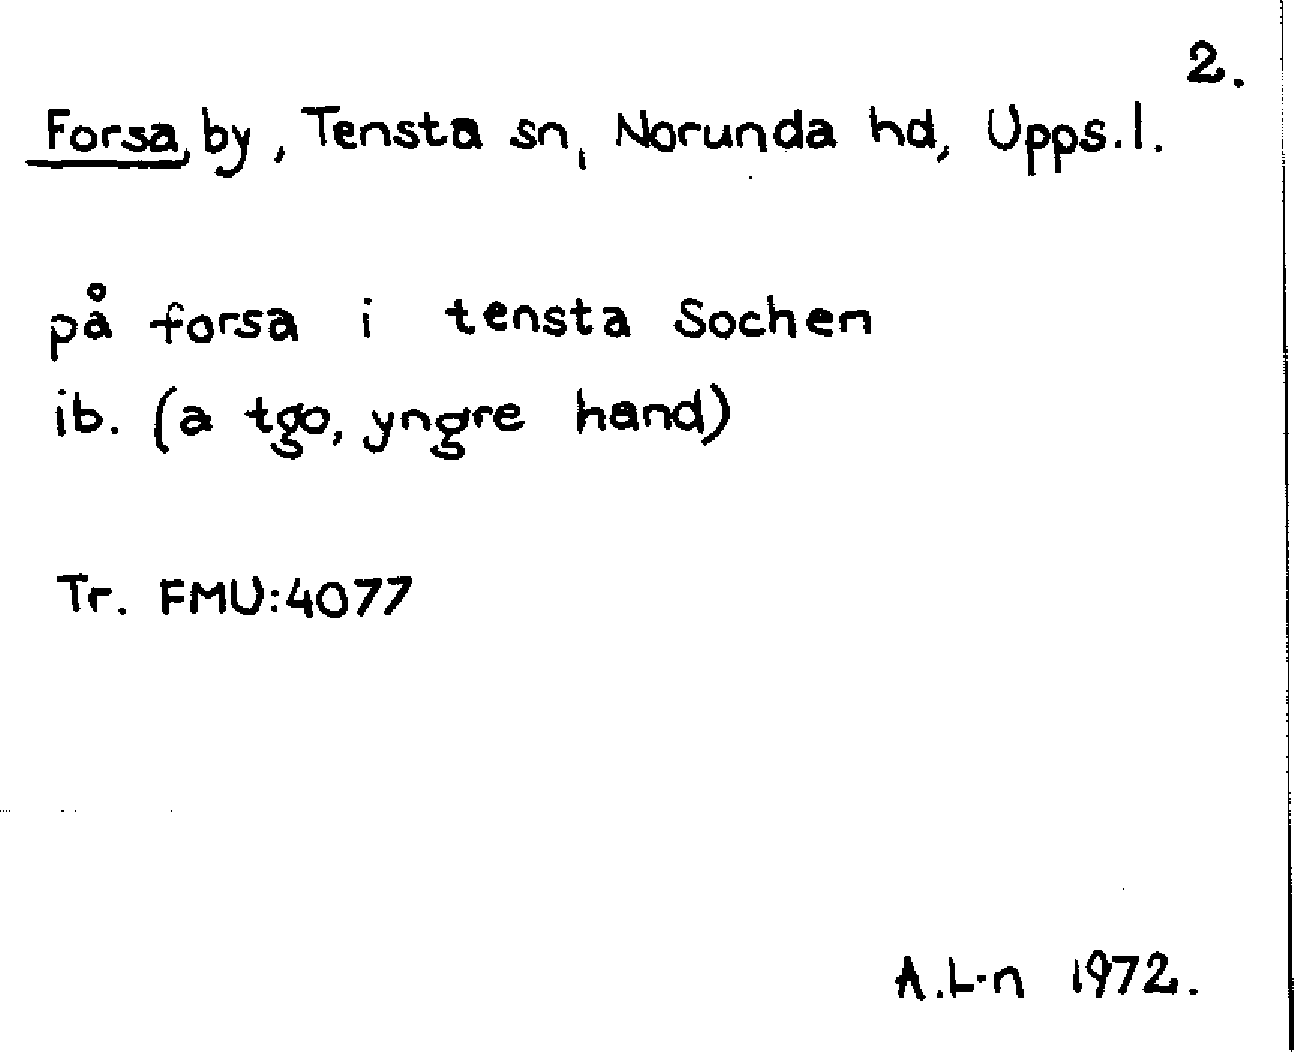 2.
Forsa, by, Tensta sn, Norunda hd, Upps.l.
på forsa i tensta Sochen
ib. (a tgo, yngre hand)
Tr. FMU:4077
A.L-n 1972.